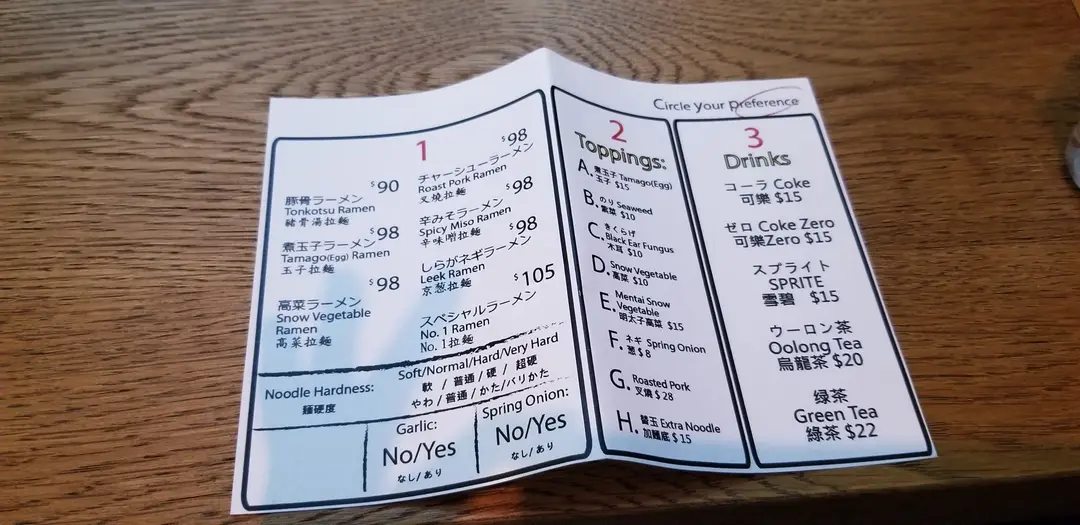 Circle your preference
1
$90
豚骨ラーメン
Tonkotsu Ramen
豬骨湯拉麵
$98
煮玉子ラーメン
Tamago(Egg) Ramen
玉子拉麵
$98
高菜ラーメン
Snow Vegetable
Ramen
高菜拉麵
$98
チャーシューラーメン
Roast Pork Ramen
叉燒拉麵
$98
辛みそラーメン
Spicy Miso Ramen
辛味噌拉麵
$98
しらがネギラーメン
Leek Ramen
京葱拉麵
$105
スペシャルラーメン
No. 1 Ramen
No. 1拉麵
Noodle Hardness:
麵硬度
Soft/Normal/Hard/Very Hard
軟 / 普通 / 硬 / 超硬
やわ / 普通 / かた/バリかた
Garlic:
No/Yes
なし/あり
Spring Onion:
No/Yes
なし/あり
2
Toppings:
A. 煮玉子 Tamago(Egg)
玉子 $15
B. のり Seaweed
紫菜 $10
C. きくらげ
Black Ear Fungus
木耳 $10
D. Snow Vegetable
高菜 $10
E. Mentai Snow
Vegetable
明太子高菜 $15
F. ネギ Spring Onion
葱 $8
G. Roasted Pork
叉燒 $28
H. 替玉 Extra Noodle
加麵底 $15
3
Drinks
コーラ Coke
可樂 $15
ゼロ Coke Zero
可樂Zero $15
スプライト
SPRITE
雪碧 $15
ウーロン茶
Oolong Tea
烏龍茶 $20
绿茶
Green Tea
綠茶 $22